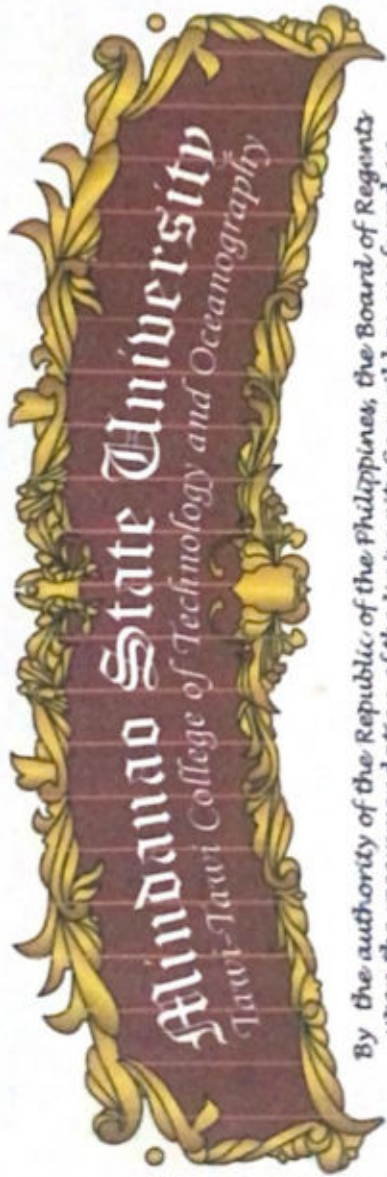 Mindanao State University
Tawi-Tawi College of Technology and Oceanography
By the authority of the Republic of the Philippines, the Board of Regents